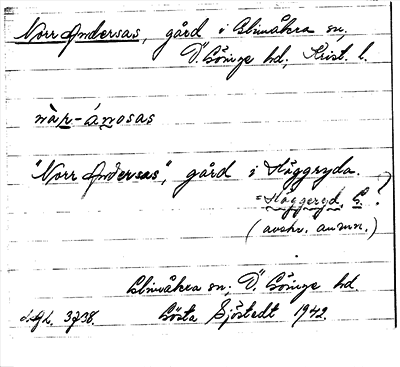 Norr Andersas, gård i Glimåkra sn.
Ö. Göinge hd, Krist. l.
nàr-ánosas
"Norr Anðersas", gård i Häggryda.
= Häggeryd. G. ?
(avskr. anmn.)
Glimåkra sn, Ö. Göinge hd.
Gösta Sjöstedt 1942.